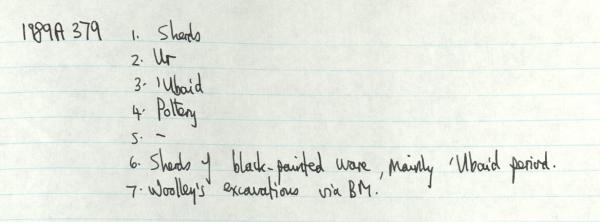 1989A 379 1. Sherds
2. Ur
3. 'Ubaid
4. Pottery
5. -
6. Sherds of black-painted ware, mainly 'Ubaid period.
7. Woolley's excavations via BM.